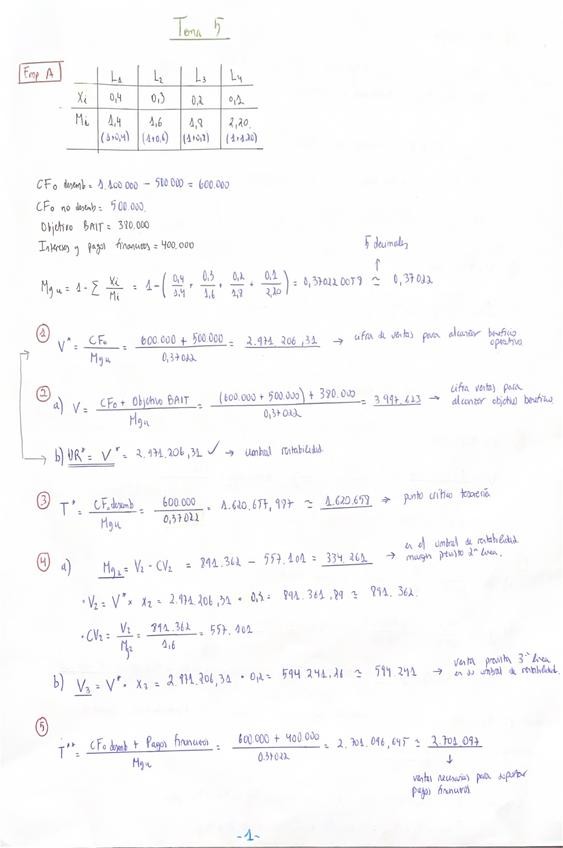 Tema 5
Emp A
L1 L2 L3 L4
Xi 0,4 0,3 0,2 0,1
Mi 1,4 1,6 1,8 2,20
(1+0,4) (1+0,6) (1+0,8) (1+1,20)
CFo desemb = 1.100.000 - 500.000 = 600.000
CFo no desemb = 500.000.
Objetivo BAIT = 380.000
Intereses y pagos financieros = 400.000
5 decimales
Mgu = 1 - Σ Xi/Mi = 1 - (0,4/1,4 + 0,3/1,6 + 0,2/1,8 + 0,1/2,20) = 0,370220059 ≃ 0,37022
① V* = CFo/Mgu = 600.000 + 500.000/0,37022 = 2.971.206,31 → cifra de ventas para alcanzar beneficio operativo
② a) V = CFo + Objetivo BAIT/Mgu = (600.000 + 500.000) + 380.000/0,37022 = 3.997.623 → cifra ventas para alcanzar objetivo beneficio
b) UR* = V* = 2.971.206,31 ✓ → umbral rentabilidad
③ T* = CFo desemb/Mgu = 600.000/0,37022 = 1.620.657,987 ≃ 1.620.658 → punto crítico tesorería
④ a) Mg2 = V2 - CV2 = 891.362 - 557.101 = 334.261 → en el umbral de rentabilidad margen previsto 2ª línea.
• V2 = V* × x2 = 2.971.206,31 • 0,3 = 891.361,89 ≃ 891.362.
• CV2 = V2/M2 = 891.362/1,6 = 557.101
b) V3 = V* • x3 = 2.971.206,31 • 0,2 = 594.241,26 ≃ 594.241 → venta prevista 3ª línea en su umbral de rentabilidad.
⑤ T** = CFo desemb + Pagos financieros/Mgu = 600.000 + 400.000/0.37022 = 2.701.096,645 ≃ 2.701.097
↓
ventas necesarias para soportar
pagos financieros
-1-